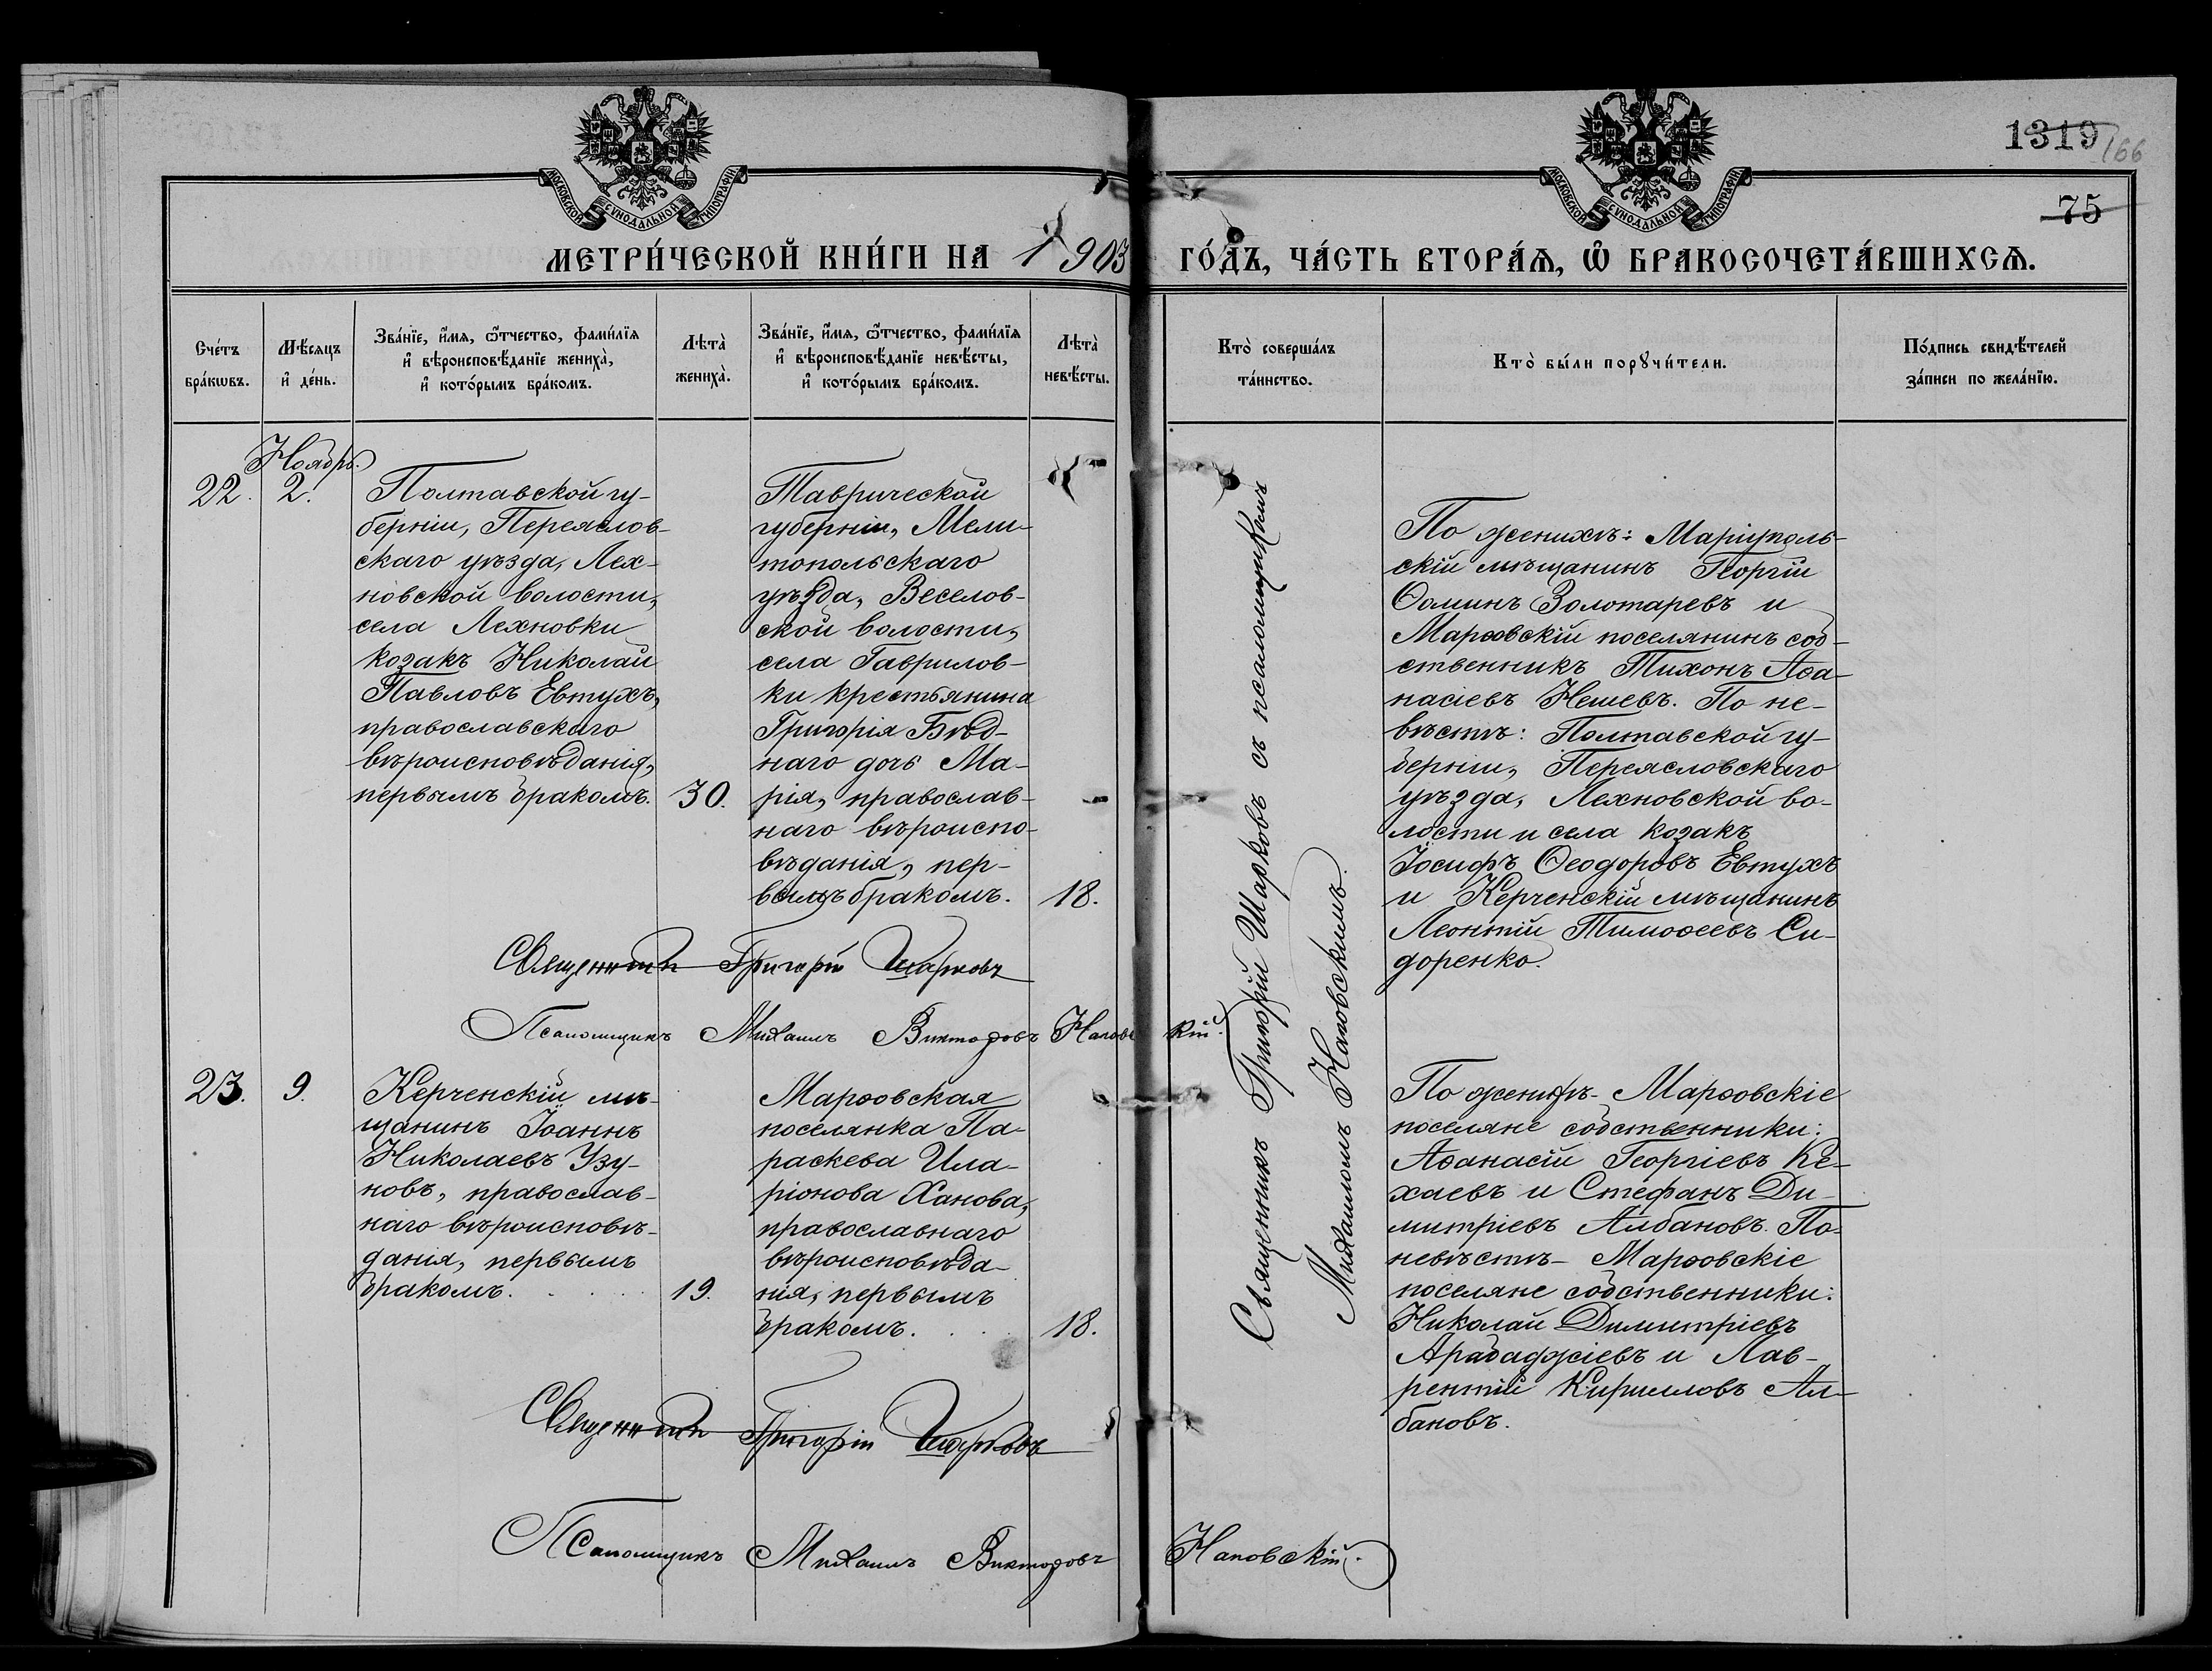 1319
166
75
МОСКОВСКОЙ СѴНОДАЛЬНОЙ ТИПОГРАФІИ
МОСКОВСКОЙ СѴНОДАЛЬНОЙ ТИПОГРАФІИ
МЕТРИ́ЧЕСКОЙ КНИ́ГИ НА 1903 ГО́ДЪ, ЧА́СТЬ ВТОРА́Ѧ, Ѽ БРАКОСОЧЕТА́ВШИХСѦ.
Сче́тъ
бра́кѡвъ.
Мѣ́сяцъ
и҆ де́нь.
Зва́нїе, и҆́мѧ, ѻ҆́тчество, фами́лїѧ
и҆ вѣроисповѣ́данїе жениха̀,
и҆ кото́рымъ бра́комъ.
Лѣта̀
жениха̀.
Зва́нїе, и҆́мѧ, ѻ҆́тчество, фами́лїѧ
и҆ вѣроисповѣ́данїе невѣ́сты,
и҆ кото́рымъ бра́комъ.
Лѣта̀
невѣ́сты.
Кто̀ соверша́лъ
та́инство.
Кто̀ бы́ли порꙋчи́тели.
По́дпись свидѣ́телей
за́писи по жела́нїю.
Ноябрь.
22.
2.
Полтавской гу-
берніи, Переяслов-
скаго уѣзда, Лех-
новской волости,
села Лехновки
козакъ Николай
Павловъ Евтухъ,
православскаго
вѣроисповѣданія,
первымъ бракомъ.
30.
Таврической
губерніи, Мели-
топольскаго
уѣзда, Веселов-
ской волости,
села Гаврилов-
ки крестьянина
Григорія Бѣд-
наго дочь Ма-
рія, православ-
наго вѣроиспо-
вѣданія, пер-
вымъ бракомъ.
18.
Священникъ Григорій Шарковъ съ псаломщикомъ
Михаиломъ Наковскимъ.
По женихѣ: Маріуполь-
скій мѣщанинъ Георгій
Ѳоминъ Золотаревъ и
Марѳовскій поселянинъ соб-
ственникъ Тихонъ Аѳа-
насіевъ Нешевъ. По не-
вѣстѣ: Полтавской гу-
берніи, Переясловскаго
уѣзда, Лехновской во-
лости и села козакъ
Іосифъ Ѳеодоровъ Евтухъ
и Керченскій мѣщанинъ
Леонтій Тимоѳеевъ Си-
доренко.
Священникъ Григорій Шарковъ
Псаломщикъ Михаилъ Викторовъ
23.
9.
Керченскій мѣ-
щанинъ Іоаннъ
Николаевъ Узу-
новъ, православ-
наго вѣроисповѣ-
данія, первымъ
бракомъ.
19.
Марѳовская
поселянка Па-
раскева Ила-
ріонова Ханова,
православнаго
вѣроисповѣда-
нія, первымъ
бракомъ.
18.
По женихѣ- Марѳовскіе
поселяне собственники:
Аѳанасій Георгіевъ Ке-
хаевъ и Стефанъ Ди-
митріевъ Албановъ. По
невѣстѣ- Марѳовскіе
поселяне собственники:
Николай Димитріевъ
Арабаджіевъ и Лав-
рентій Кирилловъ Ал-
бановъ.
Священникъ Григорій Шарковъ
Псаломщикъ Михаилъ Викторовъ